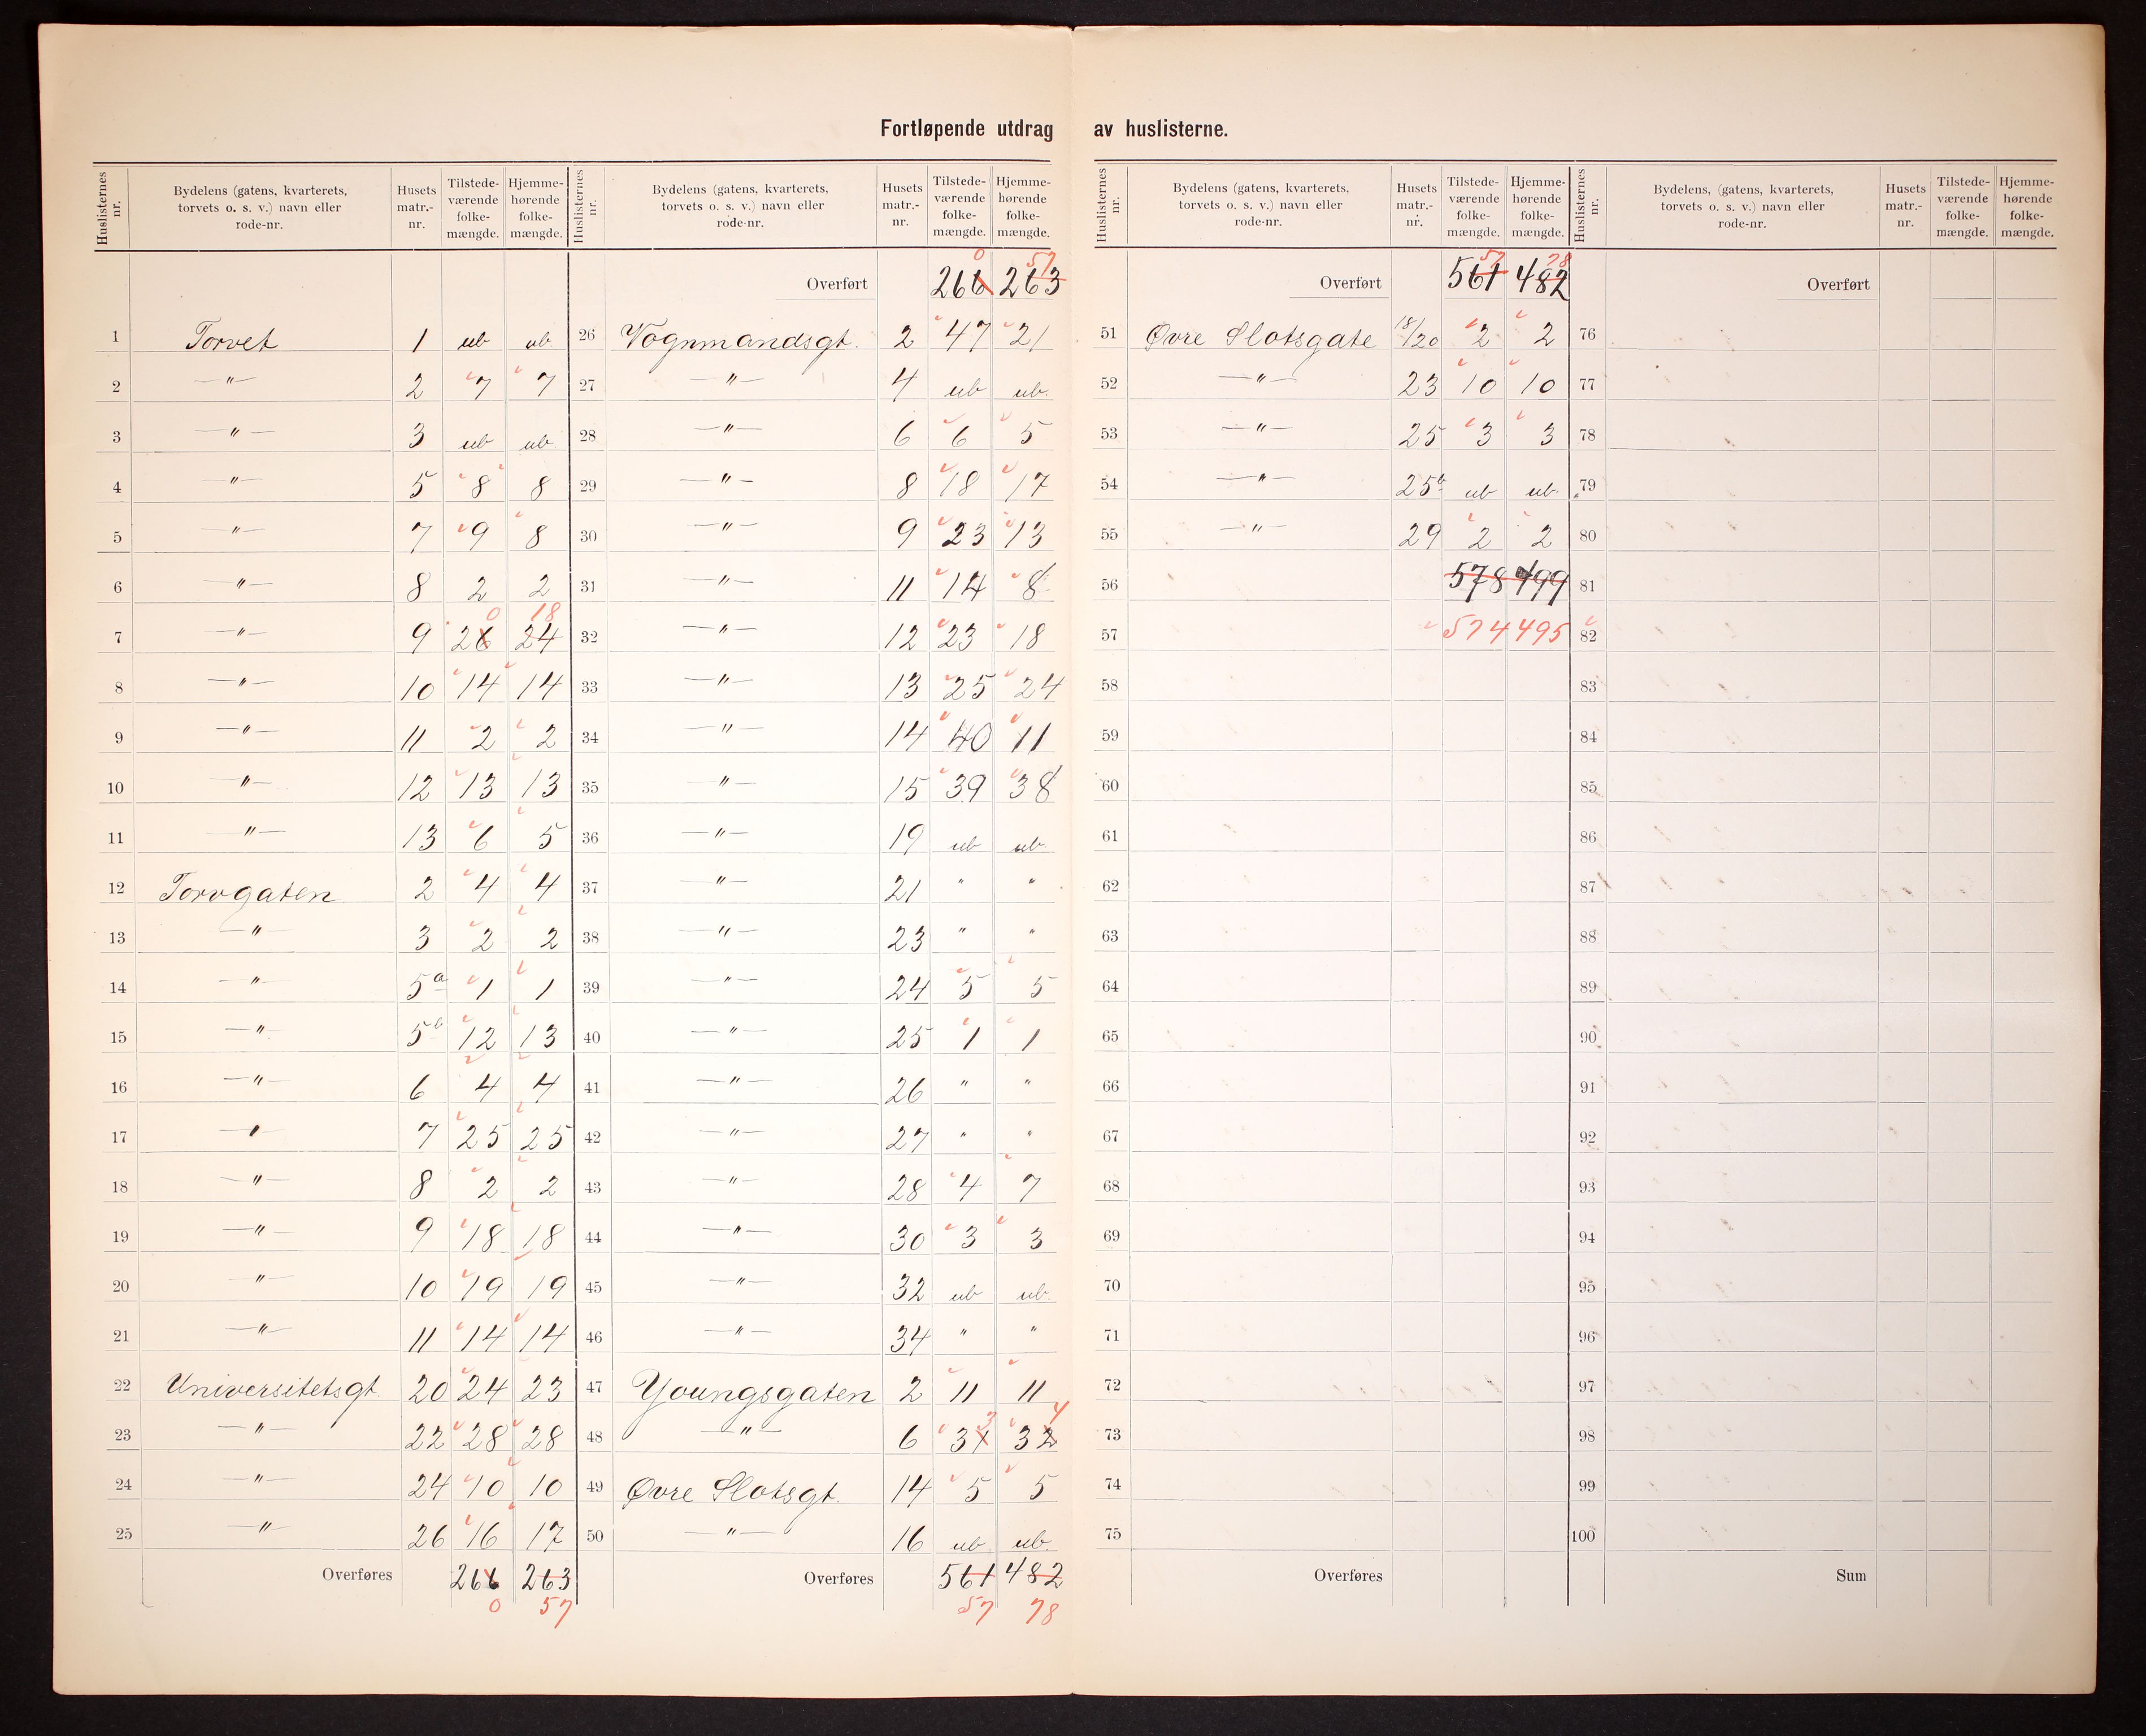 Fortløpende utdrag av huslisterne.
Huslisternes nr. | Bydelens (gatens, kvarterets, torvets o. s. v.) navn eller rode-nr. | Husets matr.-nr. | Tilstede-værende folke-mængde. | Hjemme-hørende folke-mængde.
1 Torvet 1 ub ub.
2 —〃— 2 7 7
3 —〃— 3 ub ub
4 —〃— 5 8 8
5 —〃— 7 9 8
6 —〃— 8 2 2
0 18
7 —〃— 9 26 24
8 —〃— 10 14 14
9 —〃— 11 2 2
10 —〃— 12 13 13
11 —〃— 13 6 5
12 Torvgaten 2 4 4
13 —〃— 3 2 2
14 —〃— 5a 1 1
15 —〃— 5b 12 13
16 —〃— 6 4 4
17 —〃— 7 25 25
18 —〃— 8 2 2
19 —〃— 9 18 18
20 —〃— 10 19 19
21 —〃— 11 14 14
22 Universitetsgt. 20 24 23
23 —〃— 22 28 28
24 —〃— 24 10 10
25 —〃— 26 16 17
Overføres 266 263
0 57
Huslisternes nr. | Bydelens (gatens, kvarterets, torvets o. s. v.) navn eller rode-nr. | Husets matr.-nr. | Tilstede-værende folke-mængde. | Hjemme-hørende folke-mængde.
0 57
Overført 266 263
26 Vognmandsgt. 2 47 21
27 —〃— 4 ub ub.
28 —〃— 6 6 5
29 —〃— 8 18 17
30 —〃— 9 23 13
31 —〃— 11 14 8
32 —〃— 12 23 18
33 —〃— 13 25 24
34 —〃— 14 40 11
35 —〃— 15 39 38
36 —〃— 19 ub ub.
37 —〃— 21 " "
38 —〃— 23 " "
39 —〃— 24 5 5
40 —〃— 25 1 1
41 —〃— 26 " "
42 —〃— 27 " "
43 —〃— 28 4 7
44 —〃— 30 3 3
45 —〃— 32 ub ub.
46 —〃— 34 " "
47 Youngsgaten 2 11 11
3 4
48 —〃— 6 31 32
49 Øvre Slotsgt. 14 5 5
50 —〃— 16 ub ub.
Overføres 561 482
57 78
Huslisternes nr. | Bydelens (gatens, kvarterets, torvets o. s. v.) navn eller rode-nr. | Husets matr.-nr. | Tilstede-værende folke-mængde. | Hjemme-hørende folke-mængde.
57 78
Overført 561 482
51 Øvre Slotsgate 18/20 2 2
52 —〃— 23 10 10
53 —〃— 25 3 3
54 —〃— 25b ub ub.
55 —〃— 29 2 2
56 578 499
57 574 495
58
59
60
61
62
63
64
65
66
67
68
69
70
71
72
73
74
75
Overføres
Huslisternes nr. | Bydelens, (gatens, kvarterets, torvets o. s. v.) navn eller rode-nr. | Husets matr.-nr. | Tilstede-værende folke-mængde. | Hjemme-hørende folke-mængde.
Overført
76
77
78
79
80
81
82
83
84
85
86
87
88
89
90
91
92
93
94
95
96
97
98
99
100
Sum